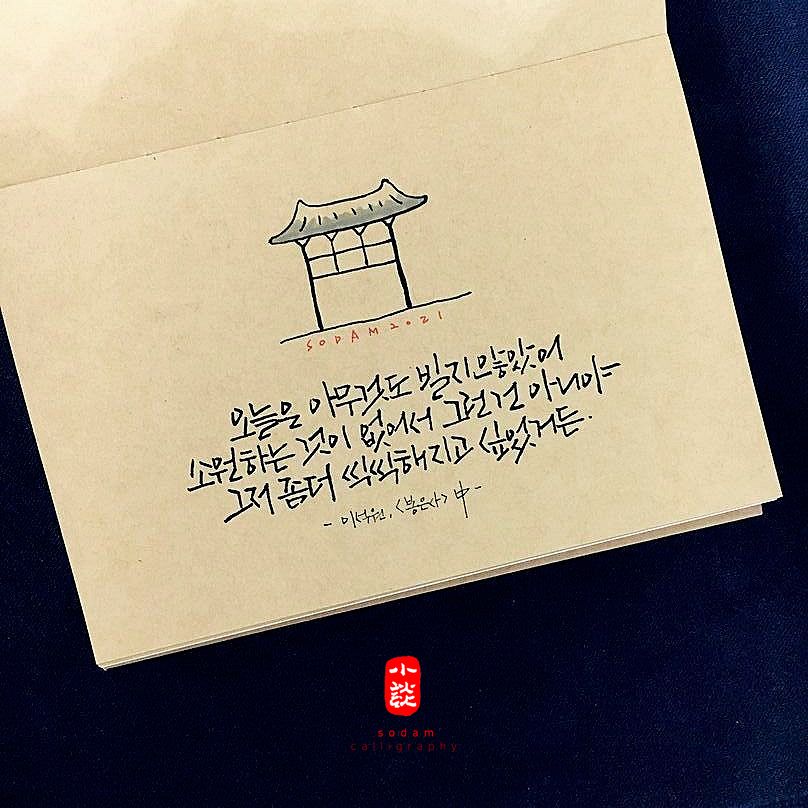 SODAM 2021
오늘은 아무것도 빌지 않았어
소원하는 것이 없어서 그런 건 아니야
그저 좀더 씩씩해지고 싶었거든.
- 이석원, <봉은사> 中 -
小談
sodam
calligraphy